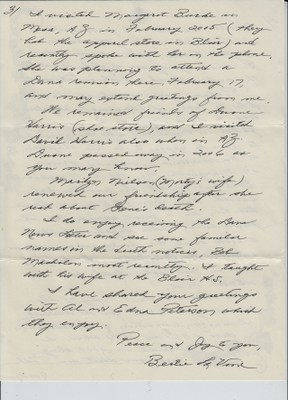 3/ I visited Margaret Burde in
Mesa, AZ in February 2005 (they
had the apparel store in Blair) and
recently spoke with her on the phone.
She was planning to attend a
Dana reunion there, February 17,
and may extend greetings from me.
We remained friends of Duane
Harris (shoe store), and I visited
Daril Harris also when in AZ
Duane passed away in 2006 as
you may know.
Marilyn Nielson (Morty's wife)
renewed our friendship after she
read about Gene's death.
I do enjoy receiving the Dana
News Letter and see some familiar
names in the death notices,
most recently. I taught
with his wife at the Blair H.S.
I have shared your greetings
with Al and Edna Peterson which
they enjoy.
Peace and Joy to you,